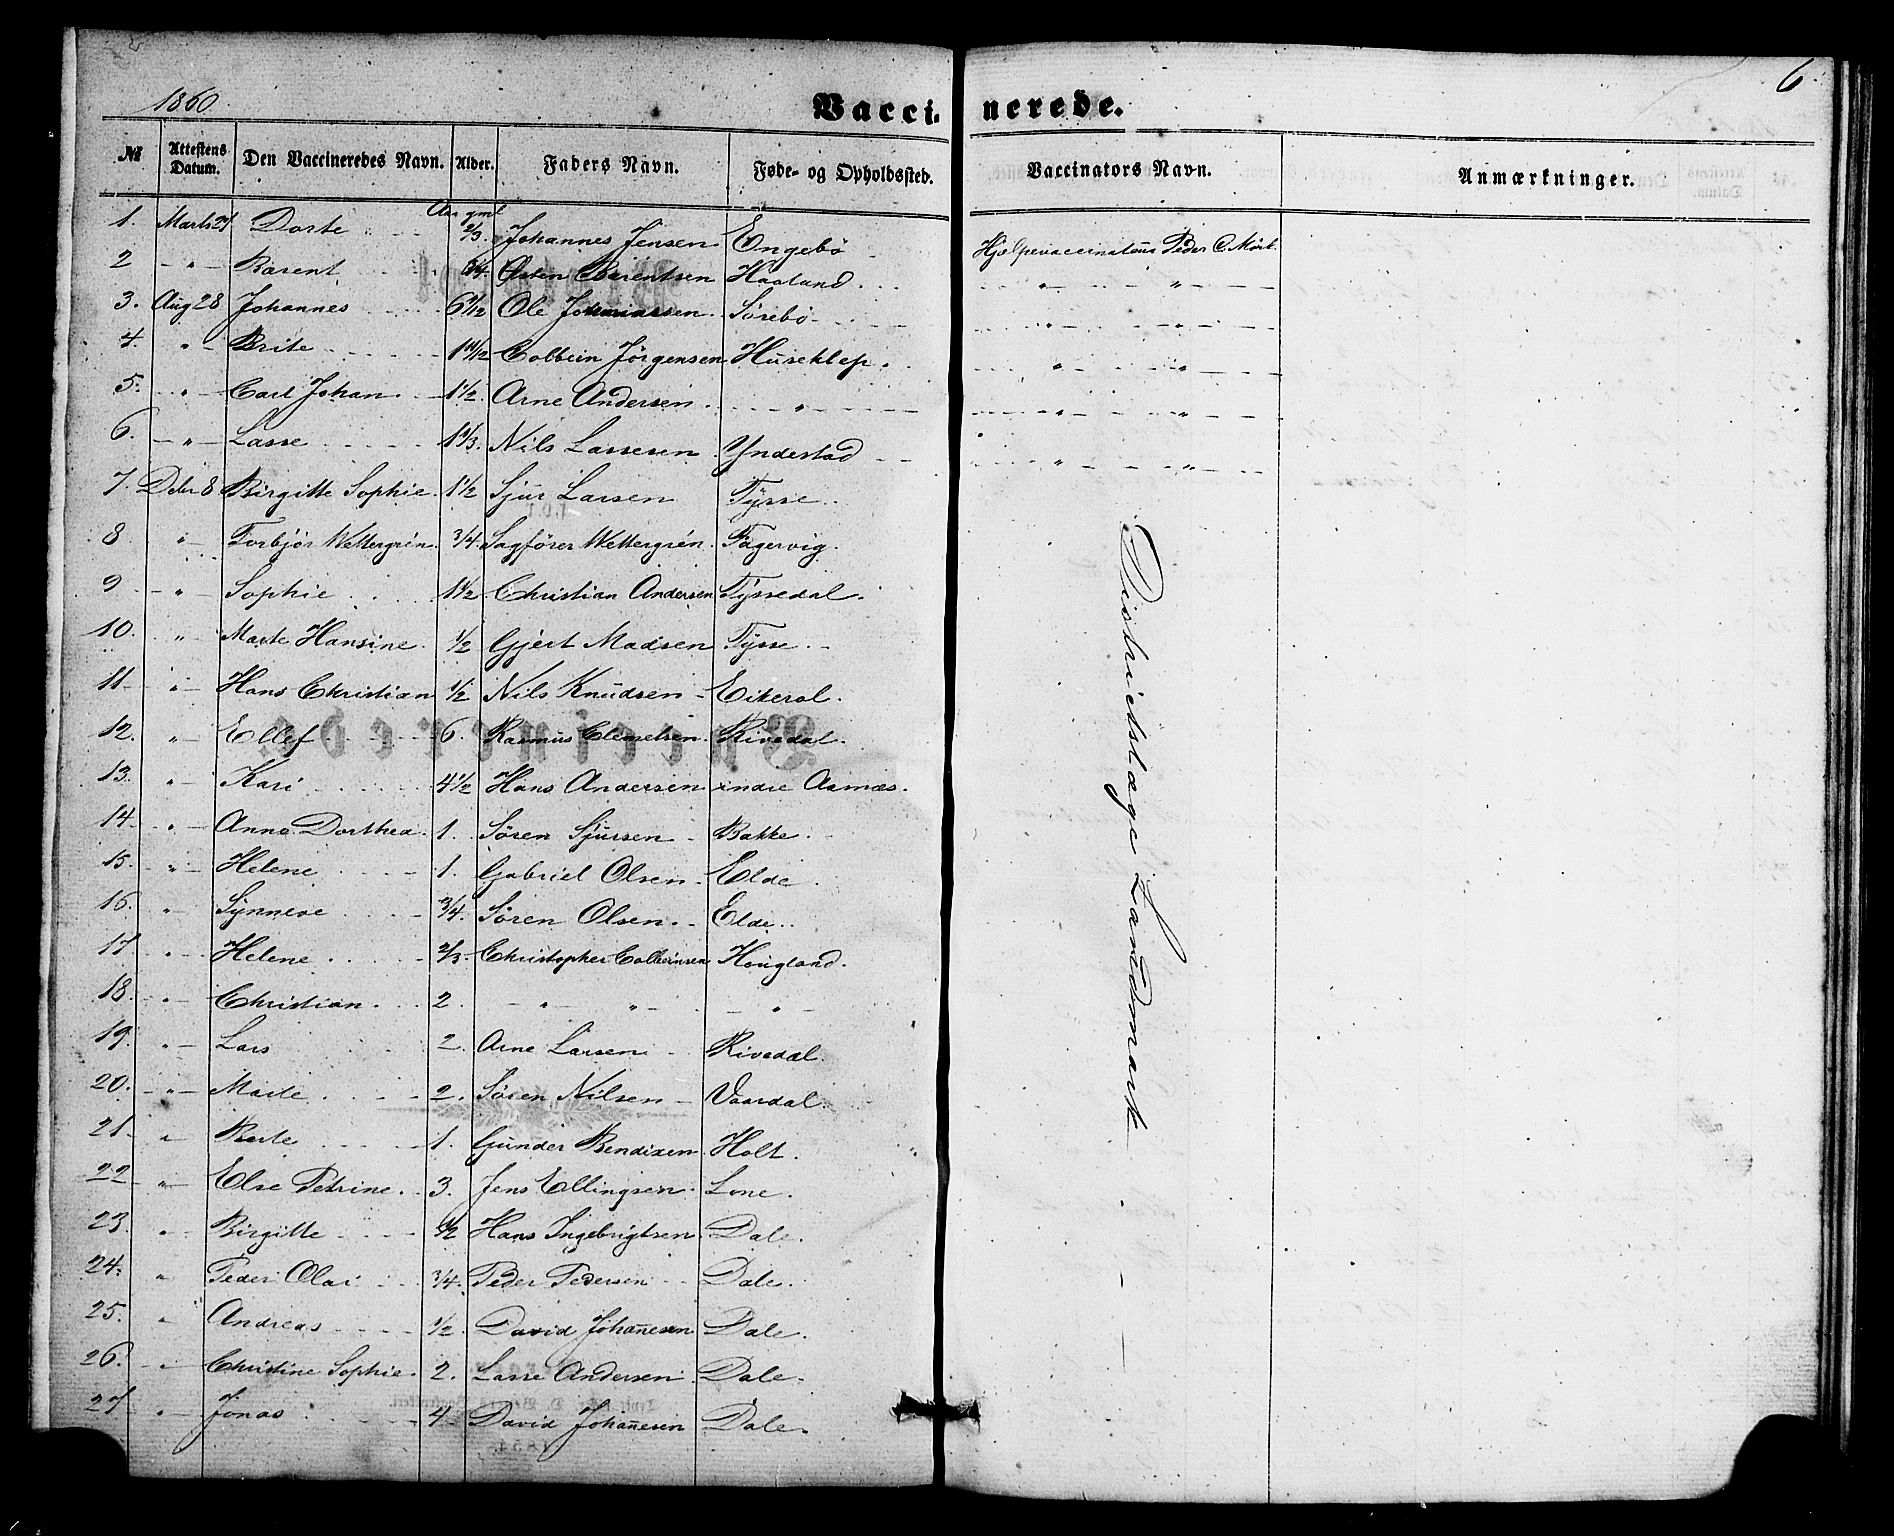 6.
1860
Vaccinerede.
№ Attestens Datum. Den Vaccineredes Navn. Alder. Faders Navn. Føde- og Opholdssted. Vaccinators Navn. Anmærkninger.
Aar gml
1. Marts 21 Dorte 2/3. Johannes Jensen Engebö Hjelpevaccinateur Peder C.
2 - " - Barent Østen Barentsen Haaland - " - " -
3. Aug 28 Johannes 6 1/2 Ole Sörebö - " - " -
4. " - Brite Colbein Jörgensen Huseklep - " - " -
5. - " - Carl Johan 1 1/2. Arne Andersen - " - - " - " -
6. - " - Lasse 1 1/3. Nils Lassesen Yndestad - " - " -
7. Dcbr 8 Birgitte Sophie 1 1/2 Sjur Larsen Tysse Districtslæge Landmark
8 " - Torbjör Wettergrén 3/4. Sagförer Wettergrén. Fagervig.
9 - " - Sophie 1 1/2 Christian Andersen Tyssedal.
10. " - Marte Hansine. 1/2 Gjert Madsen Tysse.
11 - " - Hans Christian 1/2 Nils Knudsen - Eikerol.
12. " - Ellef 6. Rasmus Clemetsen. Rivedal.
13. " - Kari 4 1/2 Hans Andersen indre Aamæs.
14. - " - Anna Dorthea. 1. Sören Sjursen - Bakke.
15. " - Helene 1. Gabriel Olsen - Elde.
16. " - Synneve 3/4. Sören Olsen. - Elde.
17 - " - Helene 2/3. Christopher Colbeinsen Hougland.
18. - " - Christian. 2. - " - " - - " -
19. " - Lars 2. Arne Larsen - Rivedal.
20. - " - Marte 2. Sören Nilsen - Vaardal.
21 - " Berte 1. Gunder Bendixen. Holt.
22 " - Else Petrine. 3. Jens Ellingsen. Lone.
23. " - Birgitte 1/2 Hans Ingebrigtsen. Dale.
24. " Peder Olai 3/4. Peder Pedersen - Dale.
25. " Andreas 1/2. David Johannesen Dale.
26. " - Christine Sophie. 2. Lasse Andersen. Dale.
27. " - Jonas 4 - David Johannesen Dale.